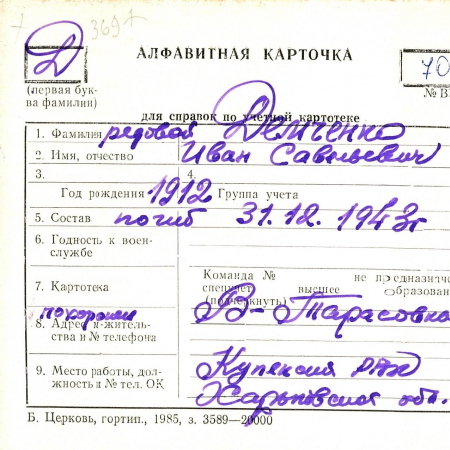 3697
Д
АЛФАВИТНАЯ КАРТОЧКА
70
(первая бук-
ва фамилии)
№ В
для справок по учетной картотеке
1. Фамилия рядовой Демченко
2. Имя, отчество Иван Савельевич
3. 4.
Год рождения 1912 Группа учета
5. Состав погиб 31.12.1943г
6. Годность к воен-
службе
7. Картотека
Команда № не предназначе
спецучет высшее образован
(подчеркнуть)
похоронен В-Тарасовка
8. Адрес жительства
и № телефона
9. Место работы, дол-
жность и № тел. ОК
Купянский р-н
Харьковская обл.
Б. Церковь, гортип., 1985, з. 3589—20000